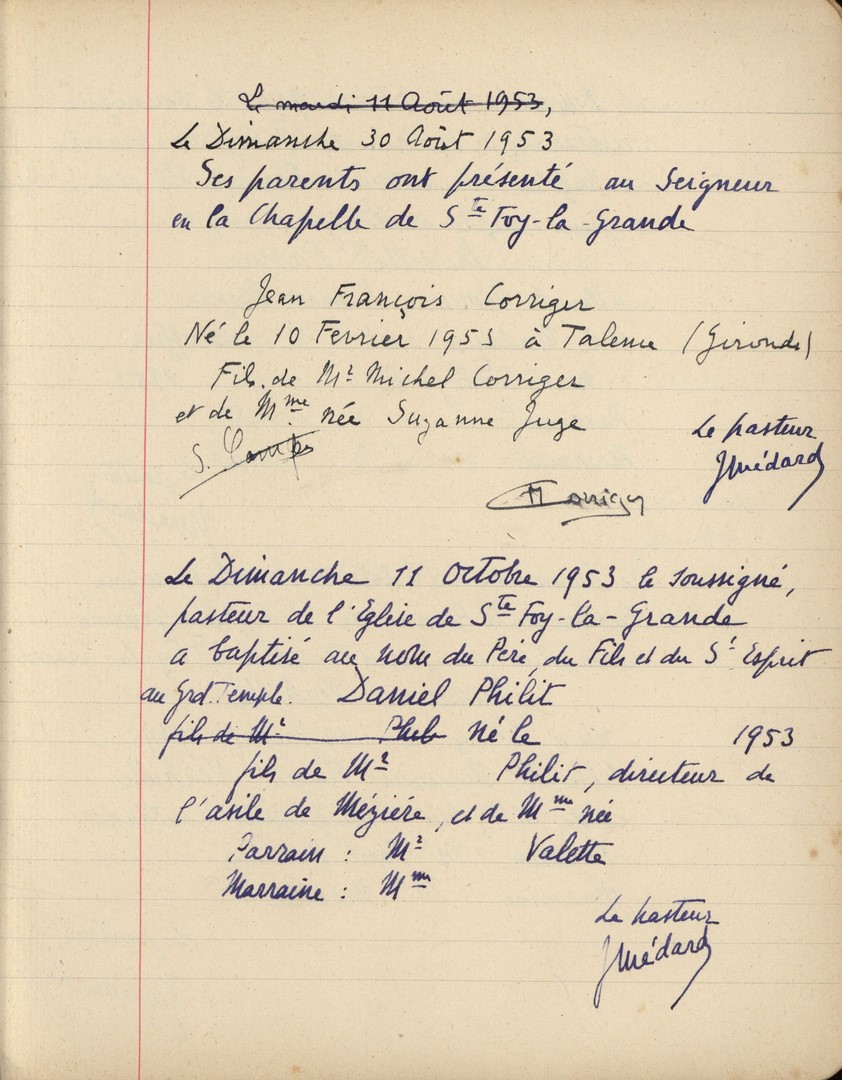 Le mardi 11 Août 1953,
Le Dimanche 30 Août 1953
Ses parents ont présenté au Seigneur
en la Chapelle de Ste Foy-la-Grande
Jean François Corriger
Né le 10 Fevrier 1953 à Talence (Gironde)
Fils de Mr Michel Corriger
et de Mme née Suzanne Juge
Le pasteur
S.
JMédard
M Corriger
Le Dimanche 11 Octobre 1953 le soussigné,
pasteur de l'Eglise de Ste Foy-la-Grande
a baptisé au nom du Père, du Fils et du St Esprit
au Grd. Temple. Daniel Philit
fils de Mr Phil né le 1953
fils de Mr Philit, directeur de
l'asile de Mézière, et de Mme née
Parrain : Mr Valette
Marraine : Mme
Le pasteur
JMédard